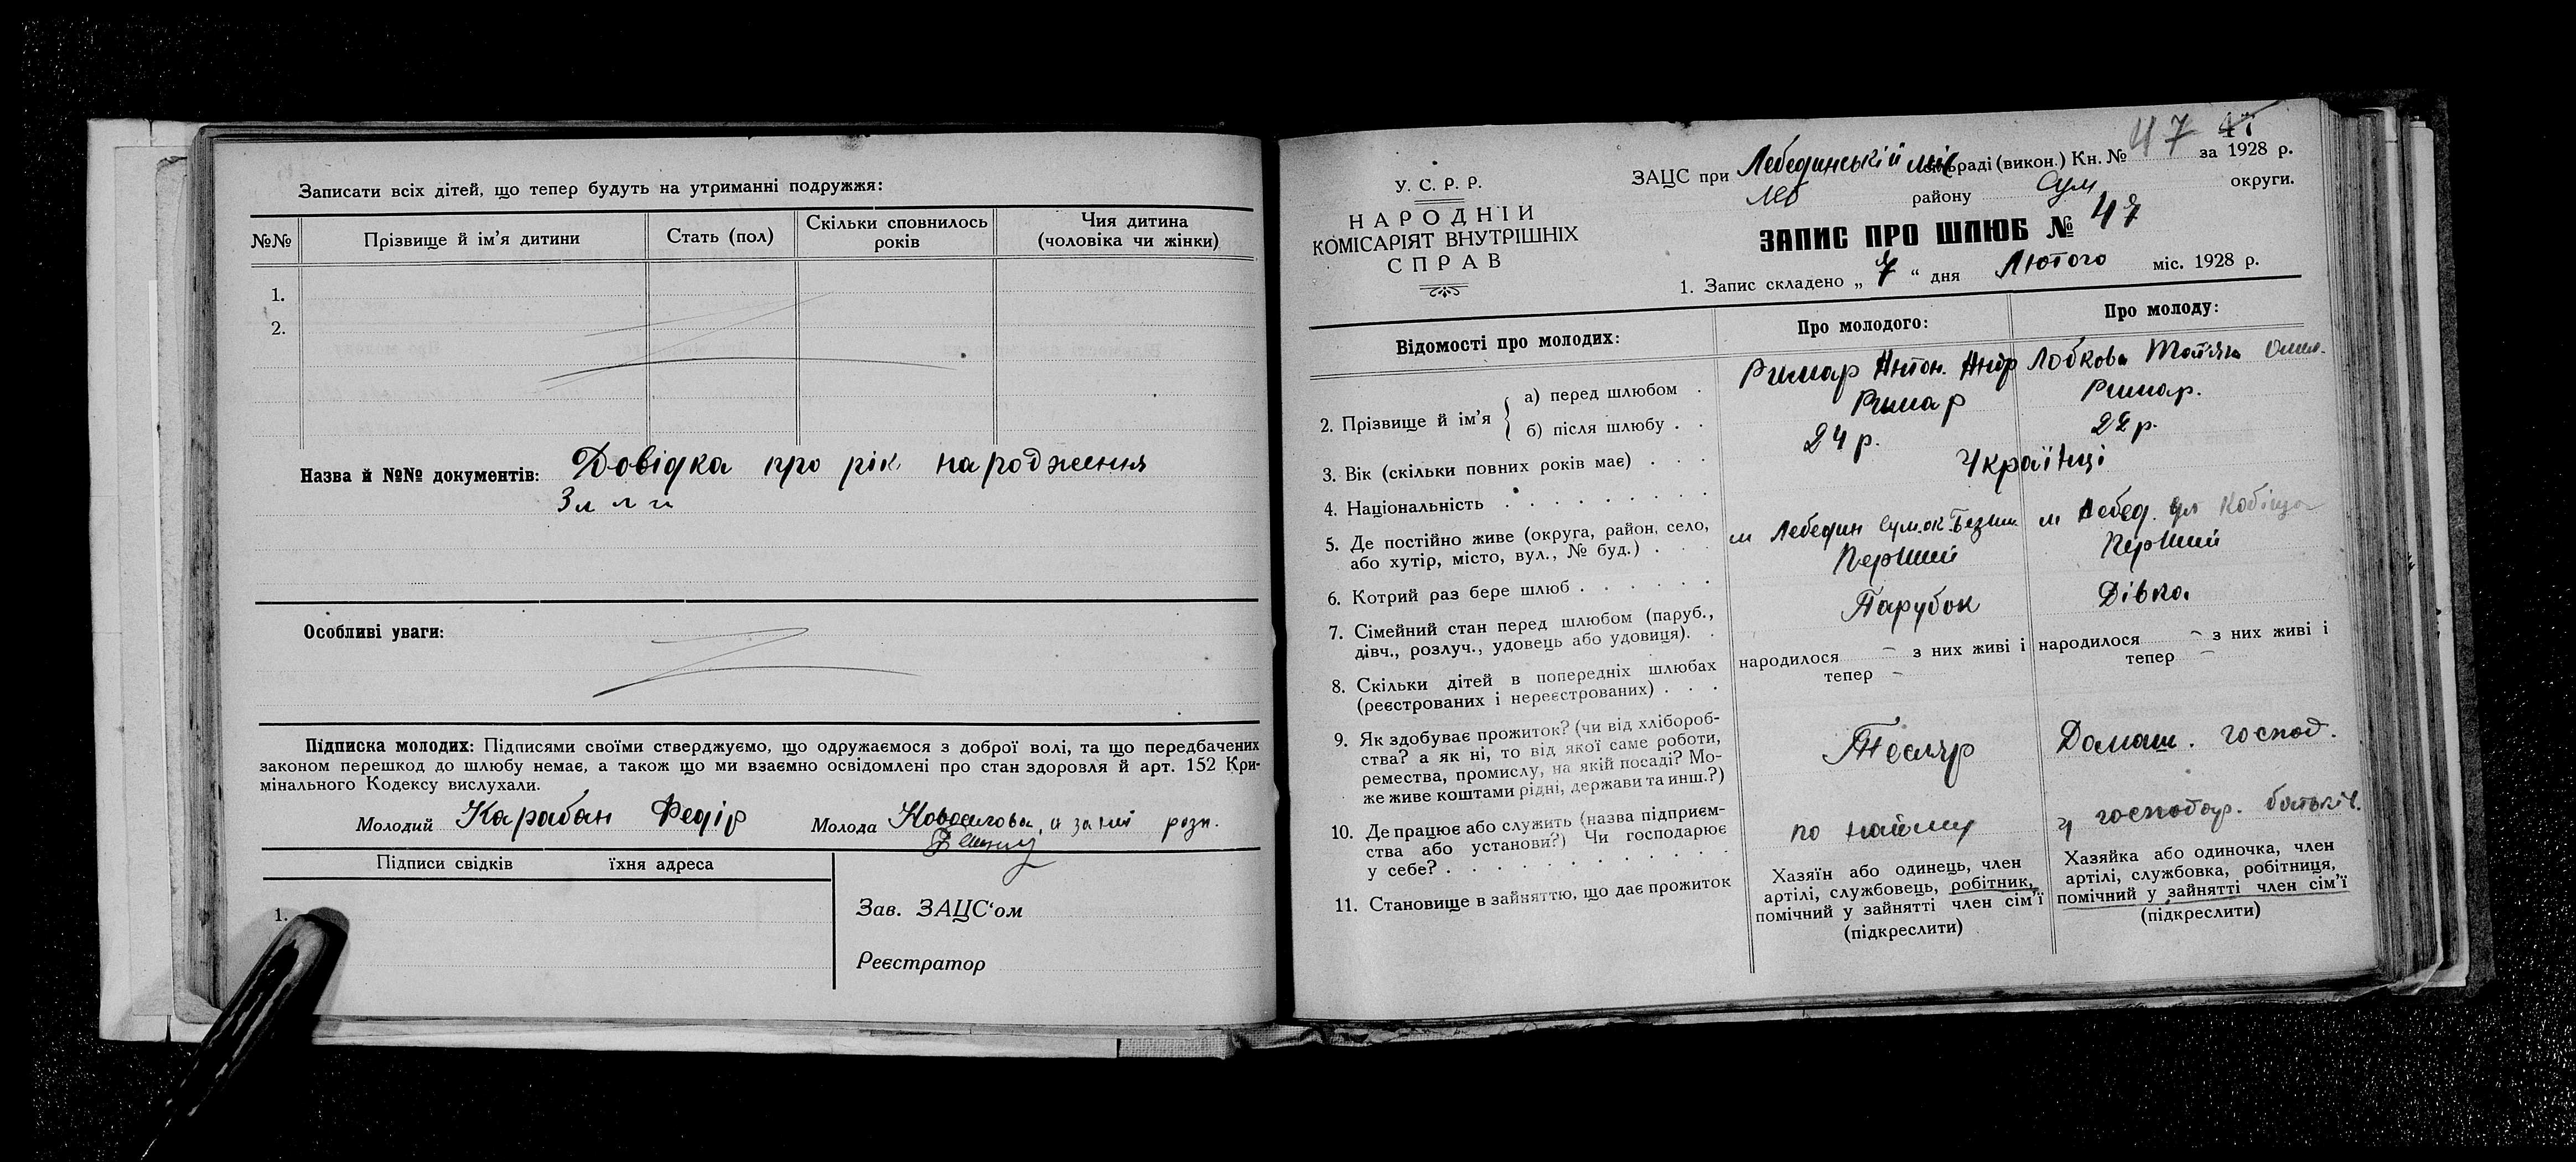 Записати всіх дітей, що тепер будуть на утриманні подружжя:
№№ Прізвище й ім'я дитини Стать (пол) Скільки сповнилось років Чия дитина (чоловіка чи жінки)
1.
2.
Назва й №№ документів: Довідка про рік народження
Особливі уваги:
Підписка молодих: Підписями своїми стверджуємо, що одружаємося з доброї волі, та що передбачених
законом перешкод до шлюбу немає, а також що ми взаємно освідомлені про стан здоровля й арт. 152 Кри-
мінального Кодексу вислухали.
Молодий Карабан Федір Молода а за неї розп.
Підписи свідків їхня адреса
1.
Зав. ЗАЦС'ом
Реєстратор
47 47
У. С. Р. Р.
НАРОДНІЙ
КОМІСАРІЯТ ВНУТРІШНІХ
СПРАВ
ЗАЦС при Лебединській міськраді (викон.) Кн. № за 1928 р.
Леб району Сум округи.
ЗАПИС ПРО ШЛЮБ № 47
1. Запис складено „ 7 “ дня Лютого міс. 1928 р.
Відомості про молодих: Про молодого: Про молоду:
2. Прізвище й ім'я { а) перед шлюбом . Римар Антон. Андр Лобкова
б) після шлюбу . . Римар Римар.
3. Вік (скільки повних років має) . . . 24 р. 22 р.
4. Національність . . . . . . . . Українці
5. Де постійно живе (округа, район, село,
або хутір, місто, вул., № буд.) . . . м Лебедин Сум.ок. м Лебед.
6. Котрий раз бере шлюб . . . . . . Перший Перший
7. Сімейний стан перед шлюбом (паруб.,
дівч., розлуч., удовець або удовиця). . Парубок Дівка
8. Скільки дітей в попередніх шлюбах
(реєстрованих і нереєстрованих) . . . народилося — з них живі і тепер — народилося — з них живі і тепер —
9. Як здобуває прожиток? (чи від хлібороб-
ства? а як ні, то від якої саме роботи,
ремества, промислу, на якій посаді? Мо-
же живе коштами рідні, держави та инш.?) Тесляр Домаш. господ.
10. Де працює або служить (назва підприєм-
ства або установи?) Чи господарює
у себе? . . . . . . . . . . по найму у господар. батьків.
11. Становище в зайняттю, що дає прожиток
Хазяїн або одинець, член
артілі, службовець, робітник,
помічний у зайнятті член сім'ї
(підкреслити)
Хазяйка або одиночка, член
артілі, службовка, робітниця,
помічний у зайнятті член сім'ї
(підкреслити)